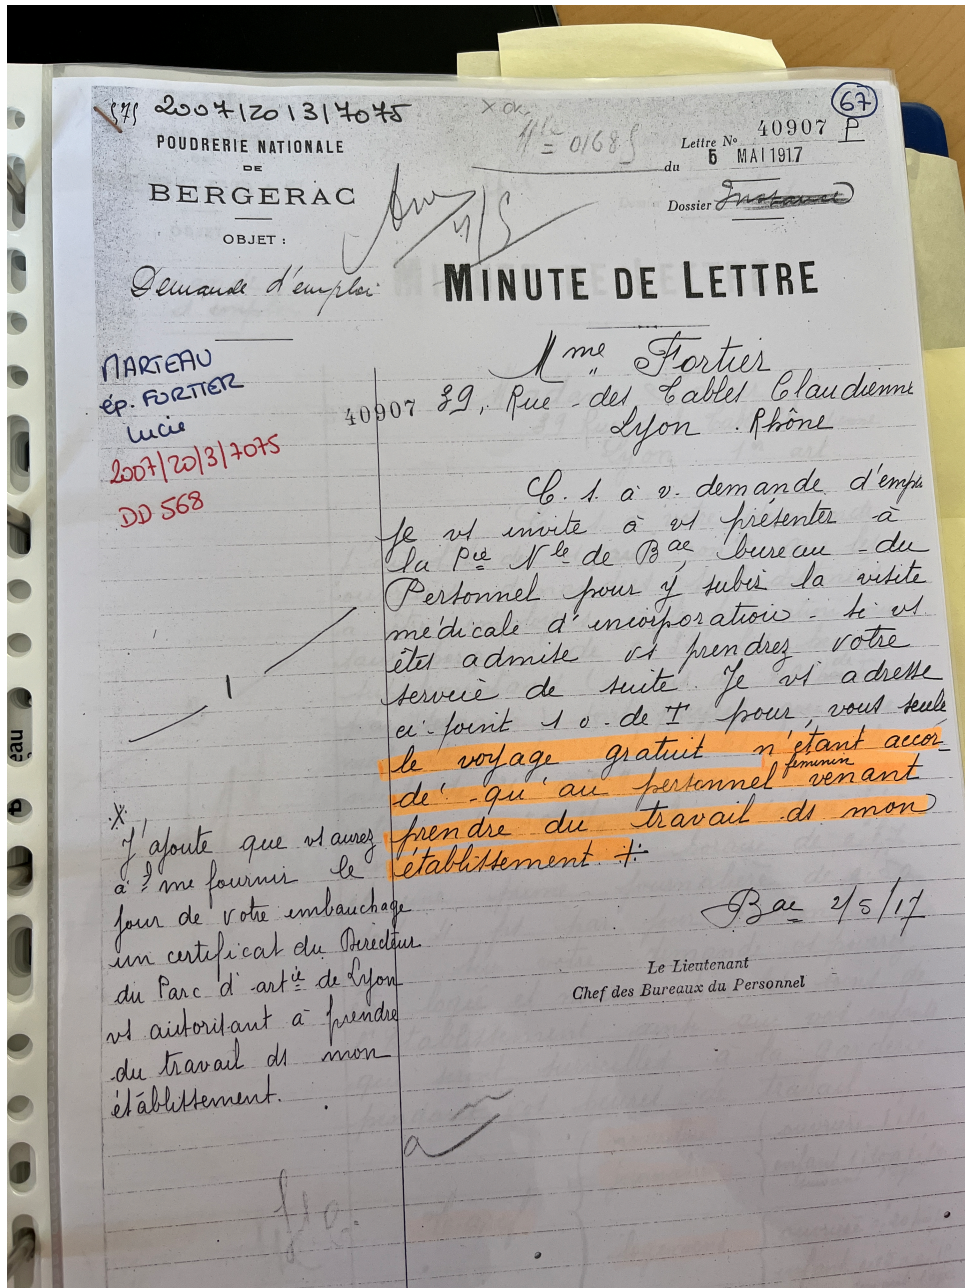 575 2007/20/3/7075
67
X ok.
Mle = 0168
POUDRERIE NATIONALE
DE
BERGERAC
Lettre No 40907 P
du 5 MAI 1917
Dossier
OBJET :
Demande d'emploi
MINUTE DE LETTRE
MARTEAU
ép. FORTIER
Lucie
2007/20/3/7075
DD 568
Mme Fortier
40907 39, Rue des Tables Claudienne
Lyon . Rhône
C. s. à v. demande d'emploi
je vs invite à vs présenter à
la Pie Nle de Bac, bureau du
Personnel pour y subir la visite
médicale d'incorporation. Si vs
êtes admise vs prendrez votre
service de suite. Je vs adresse
ci-joint 1 o. de T pour, vous seule
le voyage gratuit n'étant accor-
dé qu'au personnel féminin venant
prendre du travail ds mon
établissement
Bac 2/5/17
Le Lieutenant
Chef des Bureaux du Personnel
J'ajoute que vs aurez
à me fournir le
jour de votre embauchage
un certificat du Directeur
du Parc d'artie de Lyon
vs autorisant à prendre
du travail ds mon
établissement.